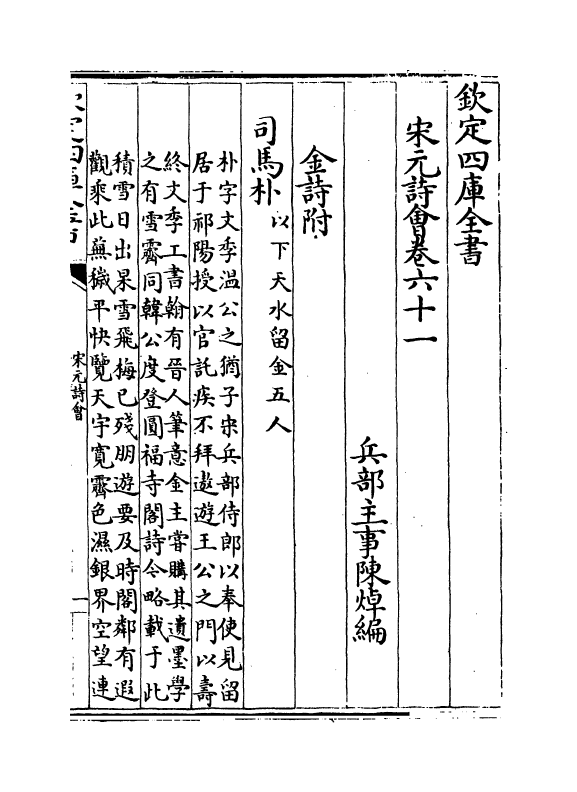 欽定四庫全書
宋元詩會卷六十一
兵部主事陳焯編
金詩附
司馬朴以下天水留金五人
朴字文季溫公之猶子宋兵部侍郎以奉使見留
居于祁陽授以官託疾不拜遨遊王公之門以壽
終文季工書翰有晉人筆意金主嘗購其遺墨學
之有雪霽同韓公度登圓福寺閣詩今略載于此
積雪日出杲雪飛梅已殘朋遊要及時閣鄰有遐
觀乘此蕪穢平快覽天宇寬霽色濕銀界空望連
宋元詩會
一